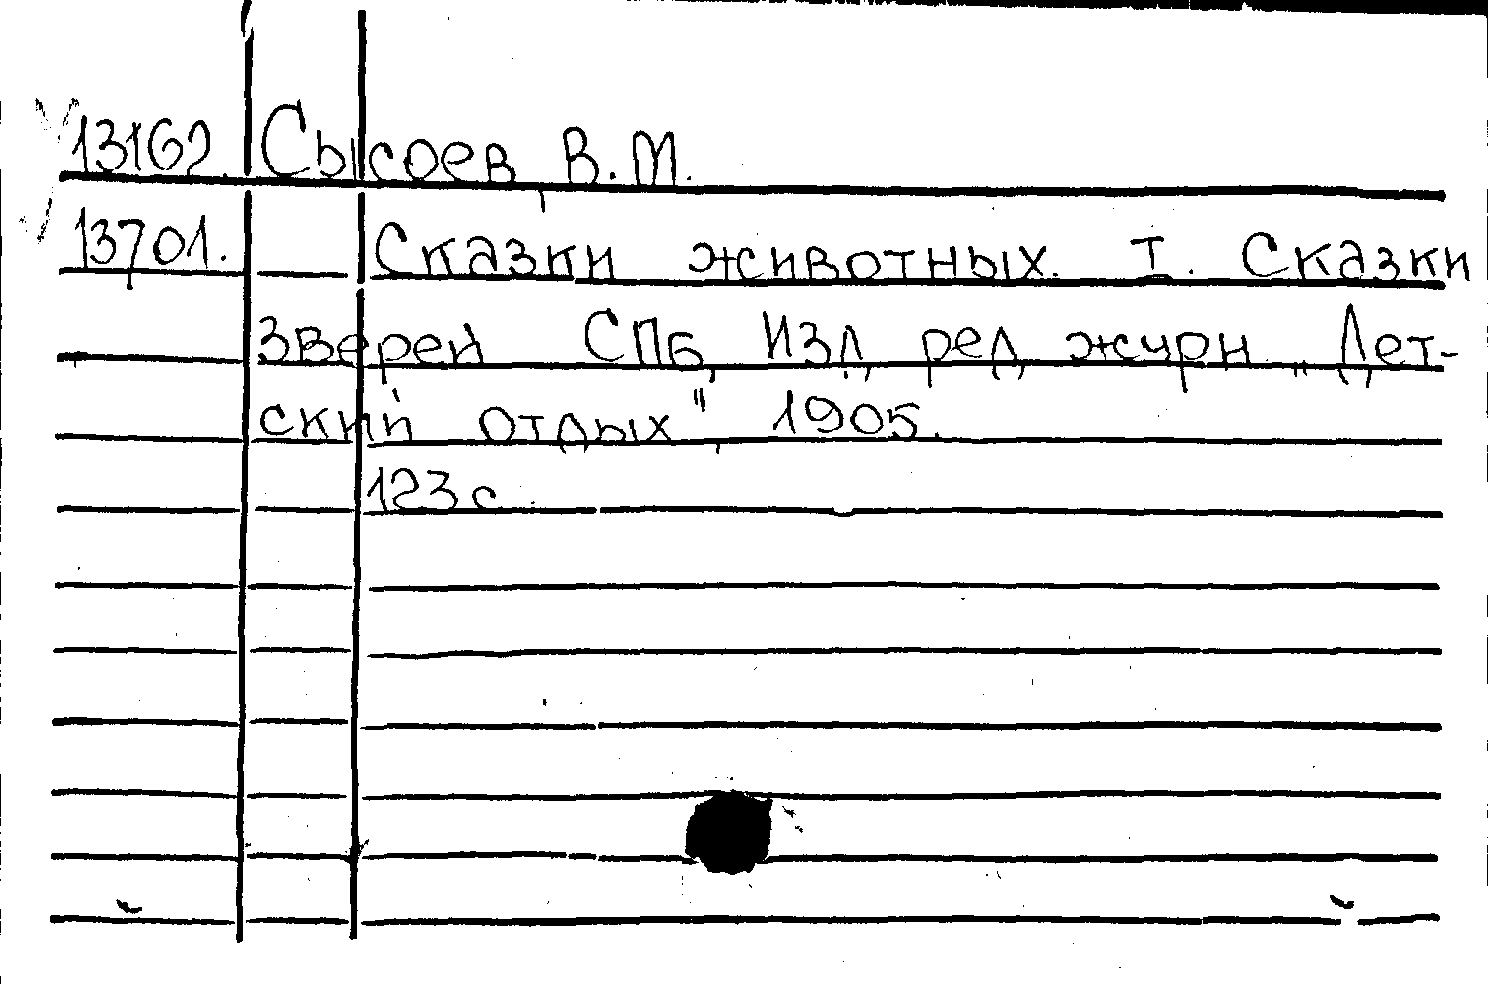 13162 Сысоев, В.М.
13701. Сказки животных. I. Сказки
зверей СПб, Изд. ред. журн. „Дет-
ский отдых", 1905.
123 с.